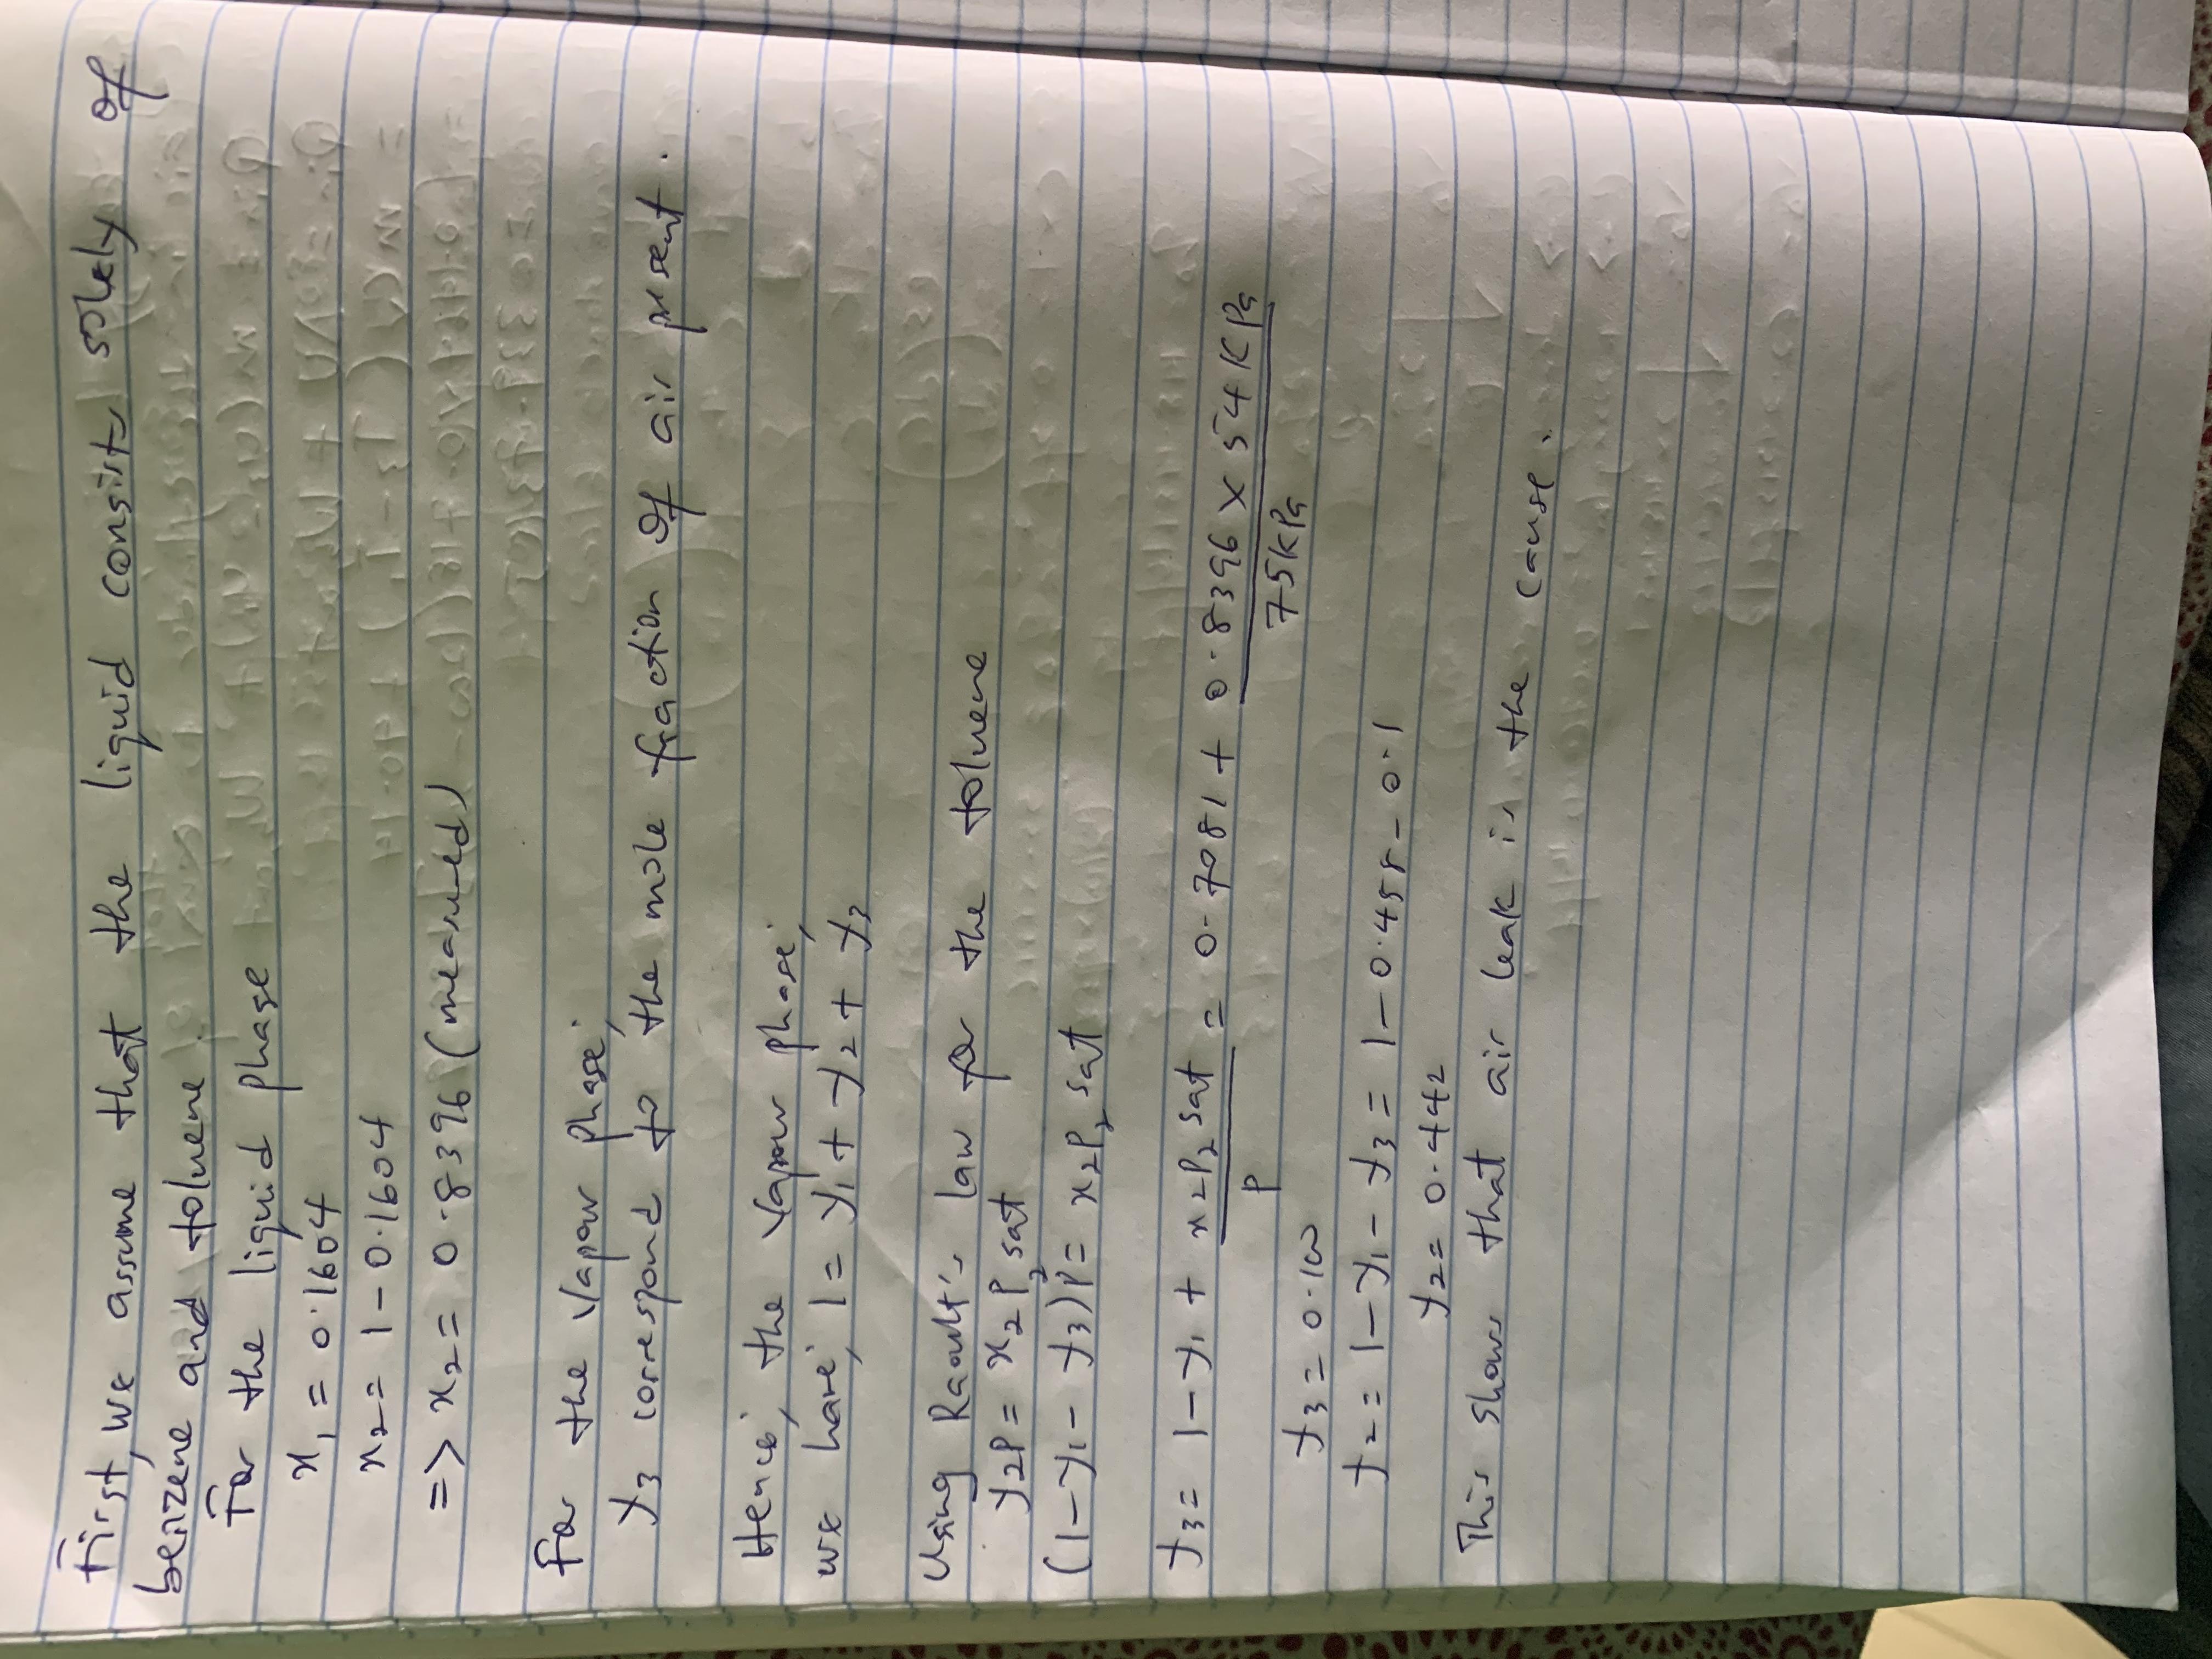 First, we assume that the liquid consists solely of
benzene and toluene.
For the liquid phase
x₁ = 0.1604
x₂ = 1 - 0.1604
=> x₂ = 0.8396 (measured)
For the vapour phase,
y₃ correspond to the mole fraction of air present.
Hence, the vapour phase,
we have, 1 = y₁ + y₂ + y₃
Using Raoult's law for the toluene
y₂P = x₂P₂sat
(1 - y₁ - y₃)P = x₂P₂sat
y₃ = 1 - y₁ + x₂P₂sat/P = 0.7081 + 0.8396 x 54KPa/75KPa
y₃ = 0.100
y₂ = 1 - y₁ - y₃ = 1 - 0.458 - 0.1
y₂ = 0.442
This shows that air leak is the cause.